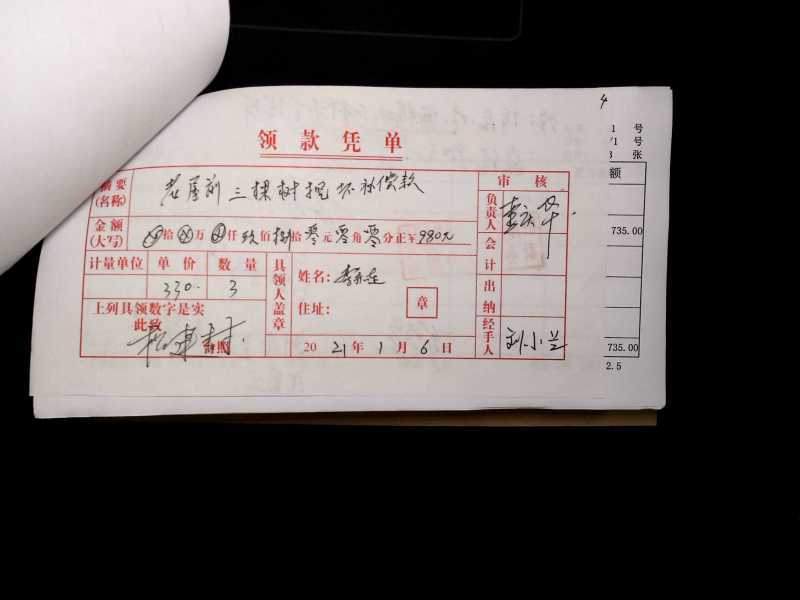 4
领款凭单
号
/1 号
张
摘要
(名称)
老屋前三棵树挖坏补偿款
审核
额
负责人
金额
(大写)
⊗拾⊗万⊗仟玖佰捌拾零元零角零分正¥980元
735.00
会计
计量单位 单价 数量
330. 3
具领人盖章
姓名:
住址:
章
出纳
上列具领数字是实
此致
台照
2021年1月6日
经手人
刘小兰
735.00
2.5